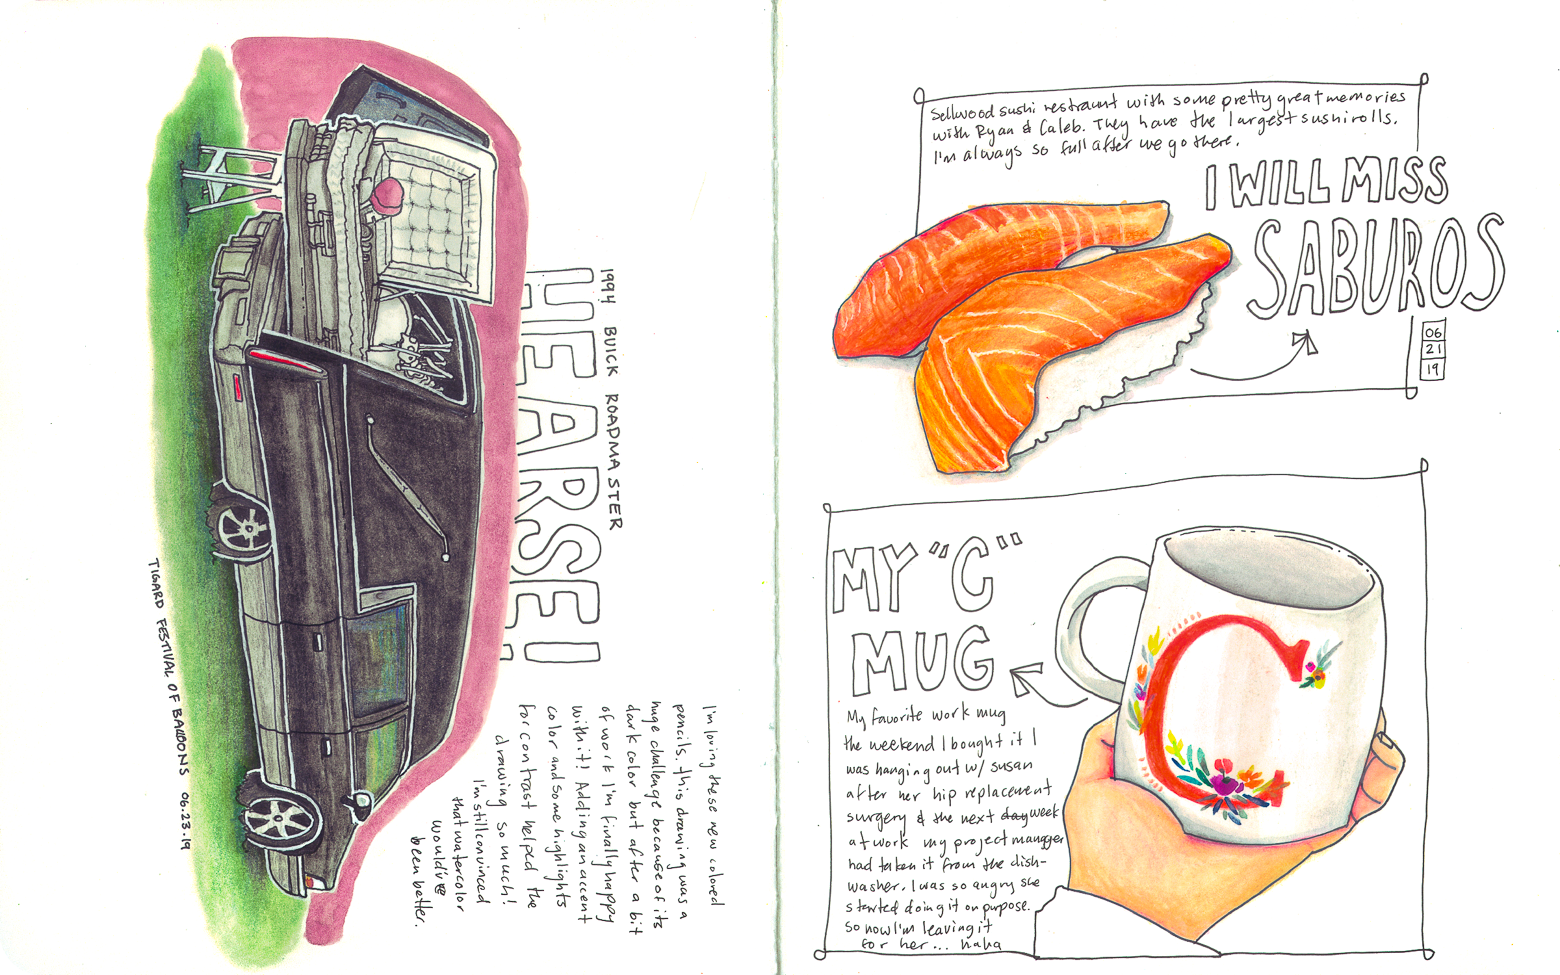 1994 BUICK ROADMASTER
HEARSE!
I'm loving these new colored
pencils. This drawing was a
huge challenge because of its
dark color but after a bit
of work I'm finally happy
with it! Adding an accent
color and some highlights
for contrast helped the
drawing so much!
I'm still convinced
that watercolor
would've
been better.
TIGARD FESTIVAL OF BALOONS 06.23.19
Sellwood sushi restraunt with some pretty great memories
with Ryan & Caleb. They have the largest sushi rolls.
I'm always so full after we go there.
I WILL MISS
SABUROS
06
21
19
MY "C"
MUG
C
My favorite work mug
the weekend I bought it I
was hanging out w/ susan
after her hip replacement
surgery & the next day week
at work my project manager
had taken it from the dish-
washer. I was so angry she
started doing it on purpose.
So now I'm leaving it
for her... haha